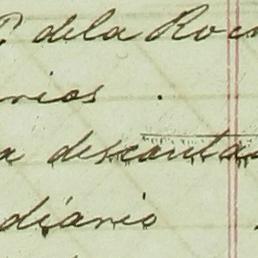 P. de la Ro
rios.
a descontar
diário